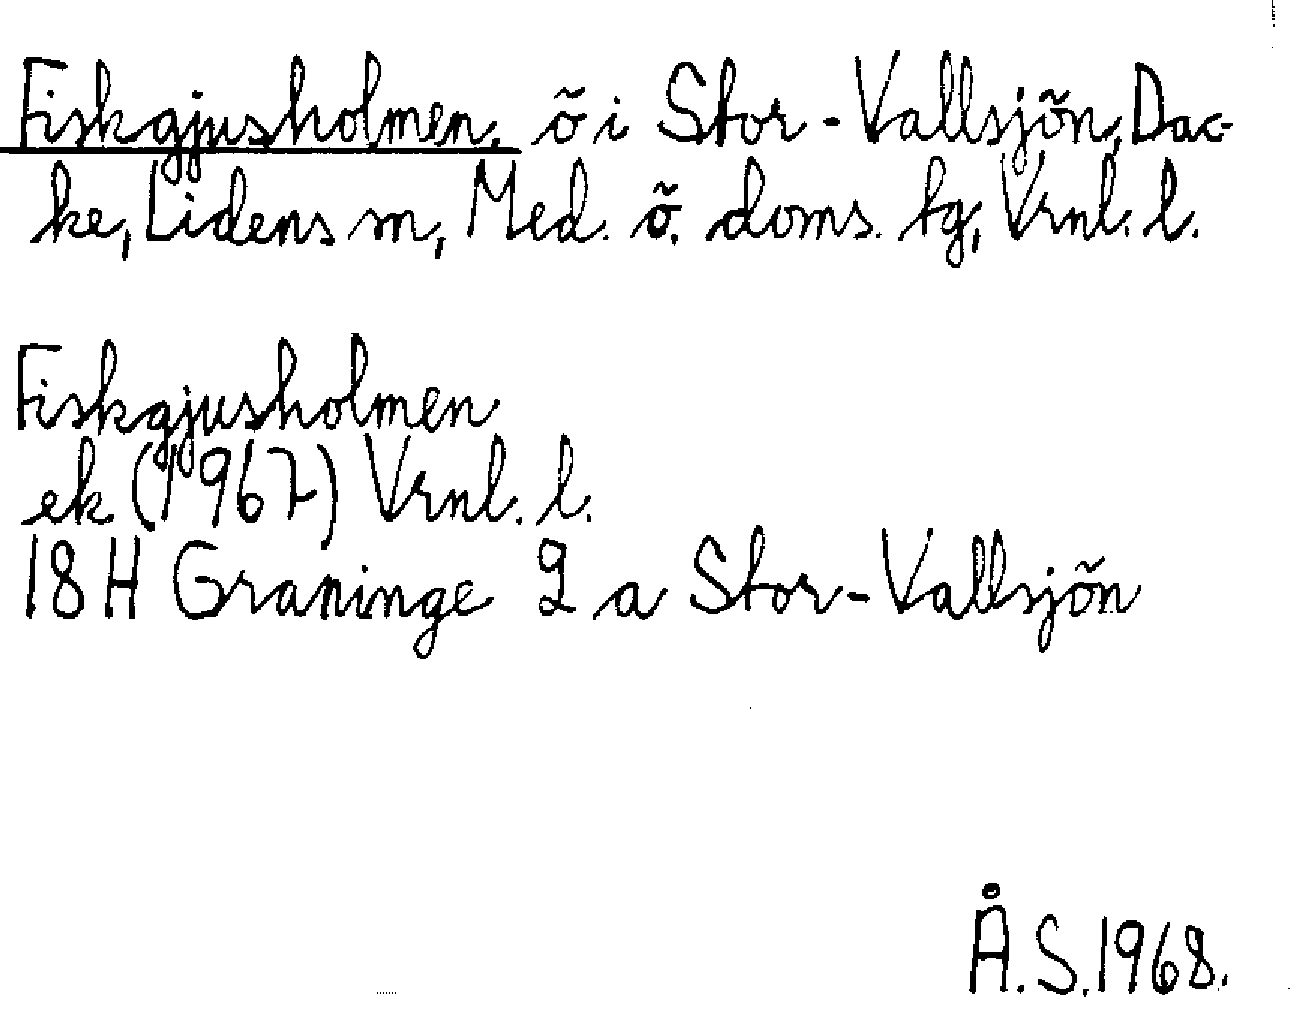 Fiskgjusholmen, ö i Stor-Vallsjön, Dac-
ke, Lidens sn, Med. ö. doms. tg, Vrnl. l.
Fiskgjusholmen
ek (1967) Vrnl. l.
18H Graninge 2 a Stor-Vallsjön
Å.S. 1968.